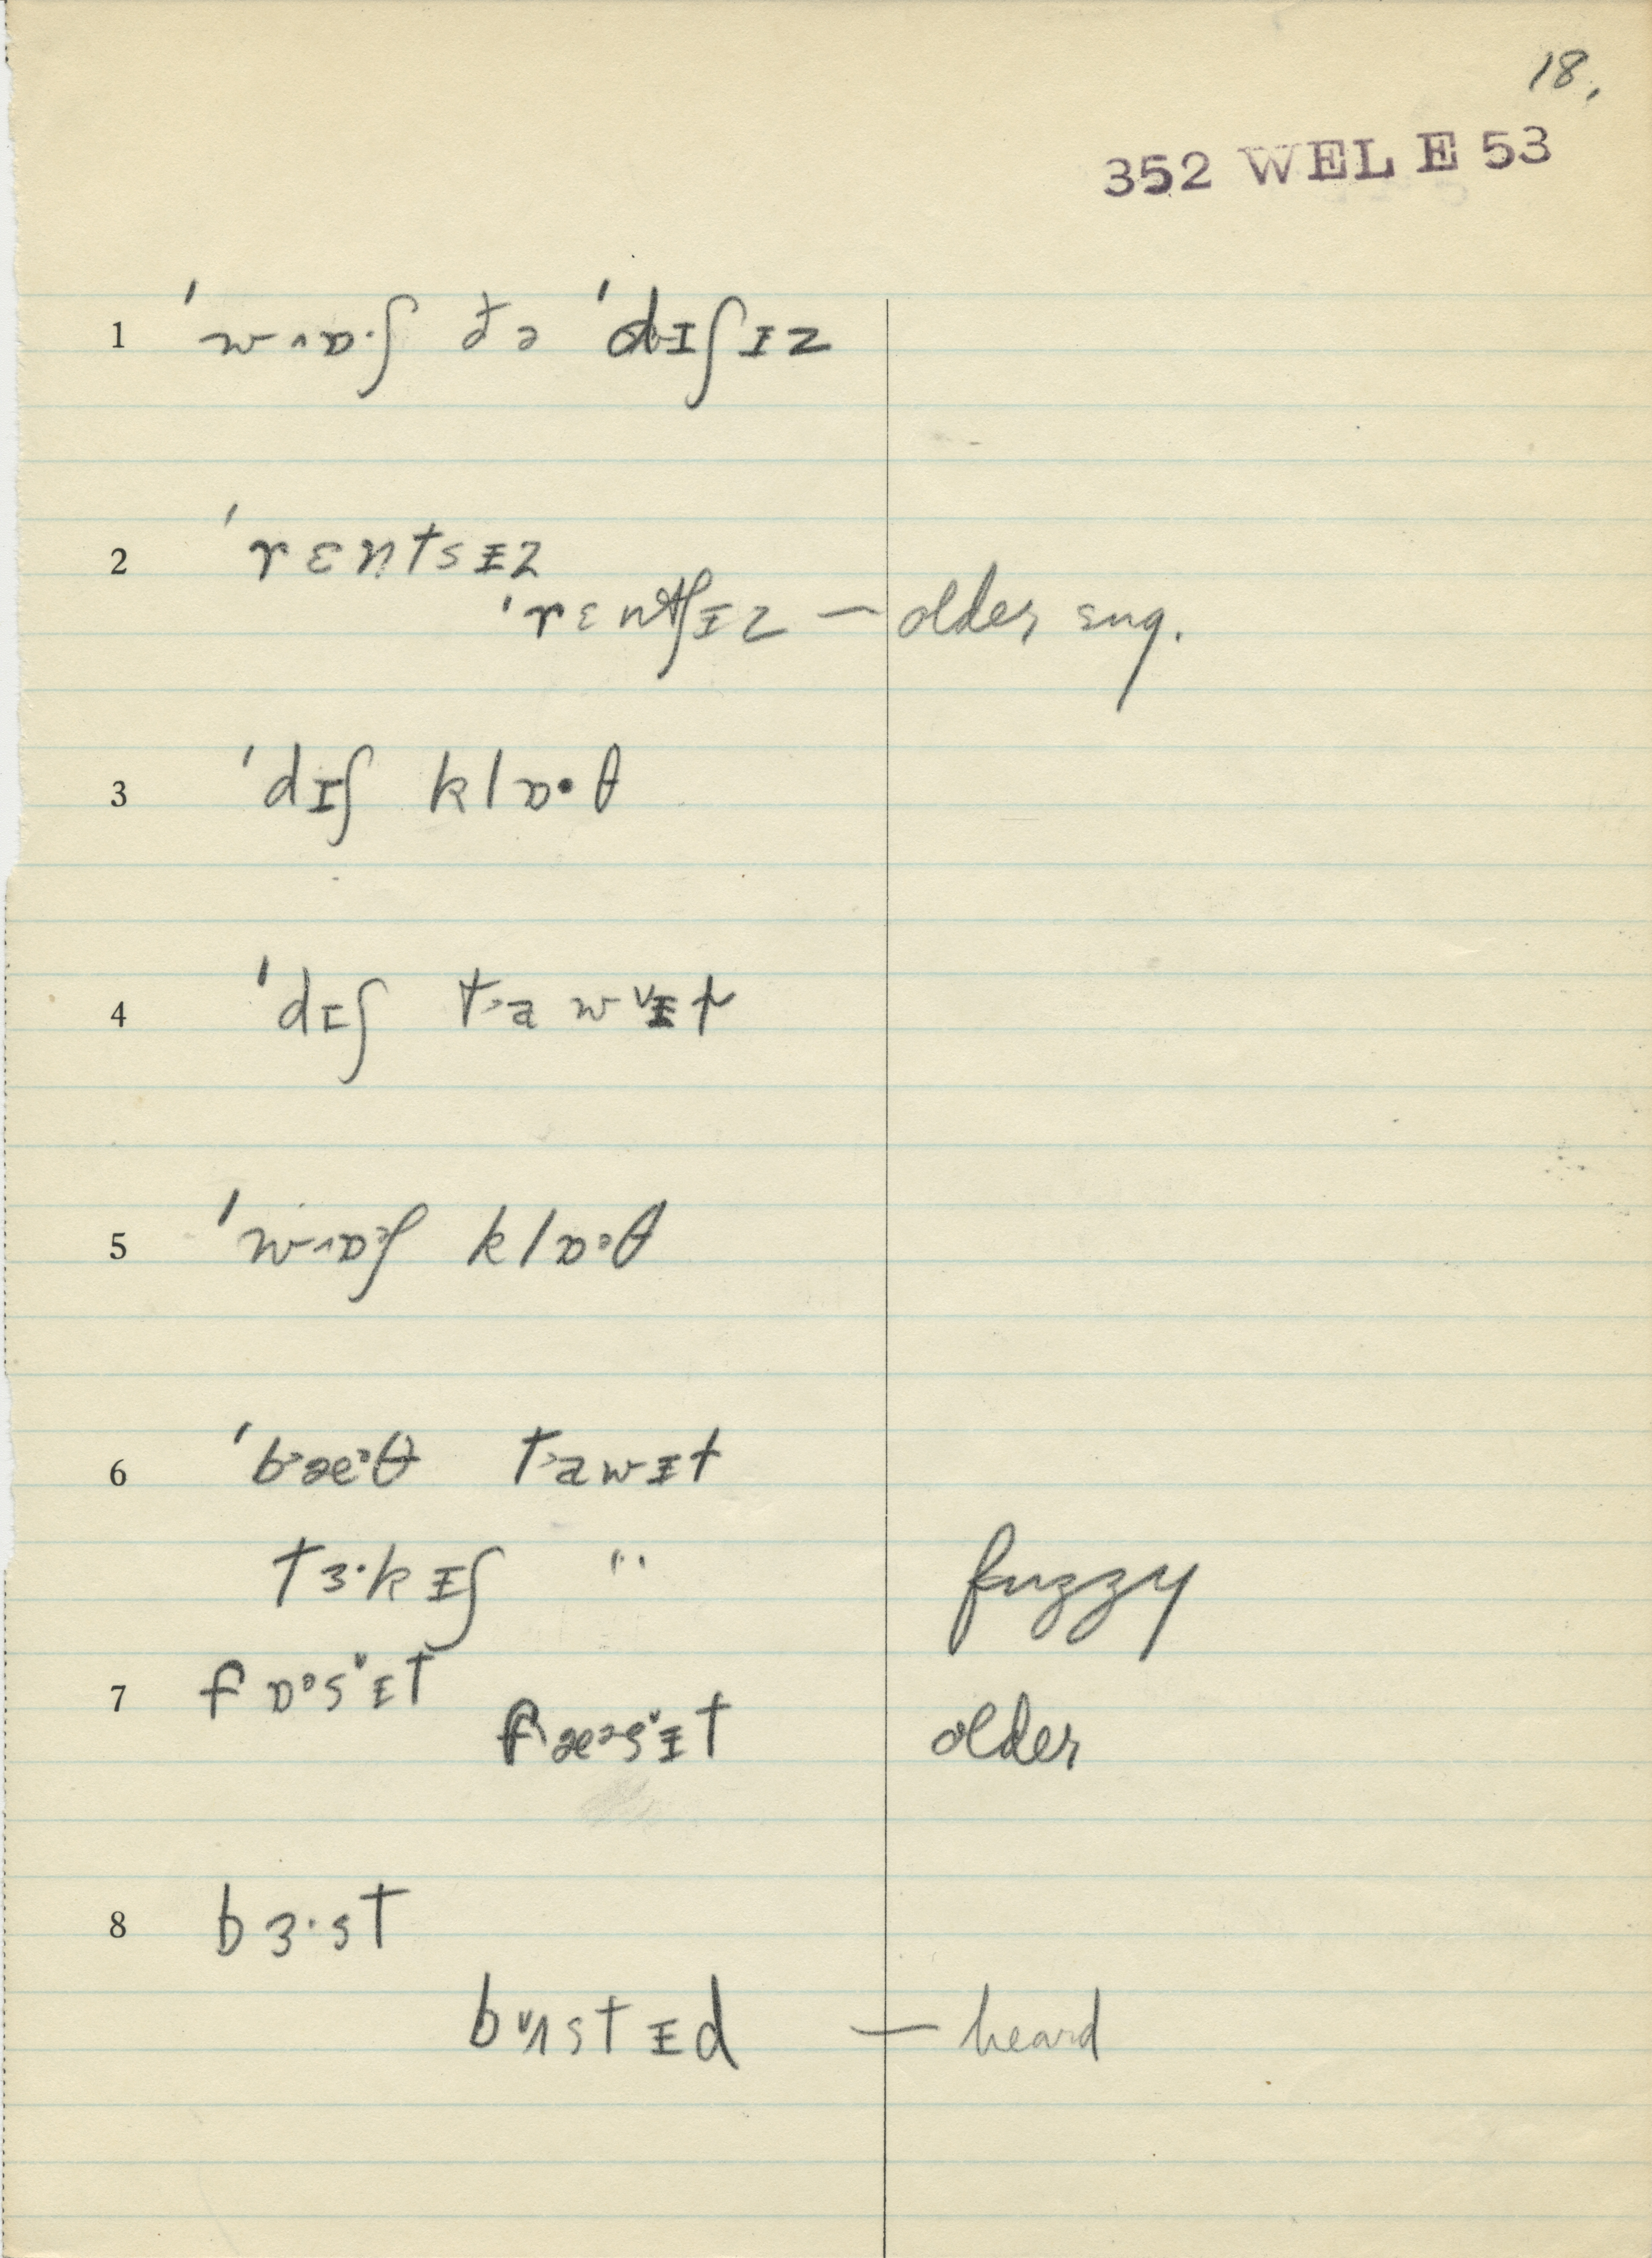 18.
352 WEL E 53
1 ˈwɒ·ʃ ðə ˈdɪʃɪz
2 ˈrɛntsɪz
ˈrɛntʃɪz — older eng.
3 ˈdɪʃ klɒ·θ
4 ˈdɪʃ tawɪt
5 ˈwɒ·ʃ klɒ·θ
6 ˈbæ·θ tawɪt
tɜ·kɪʃ " fuzzy
7 fɒ·sɪt
fæ·sɪt older
8 bɜ·st
bʌstɪd — heard